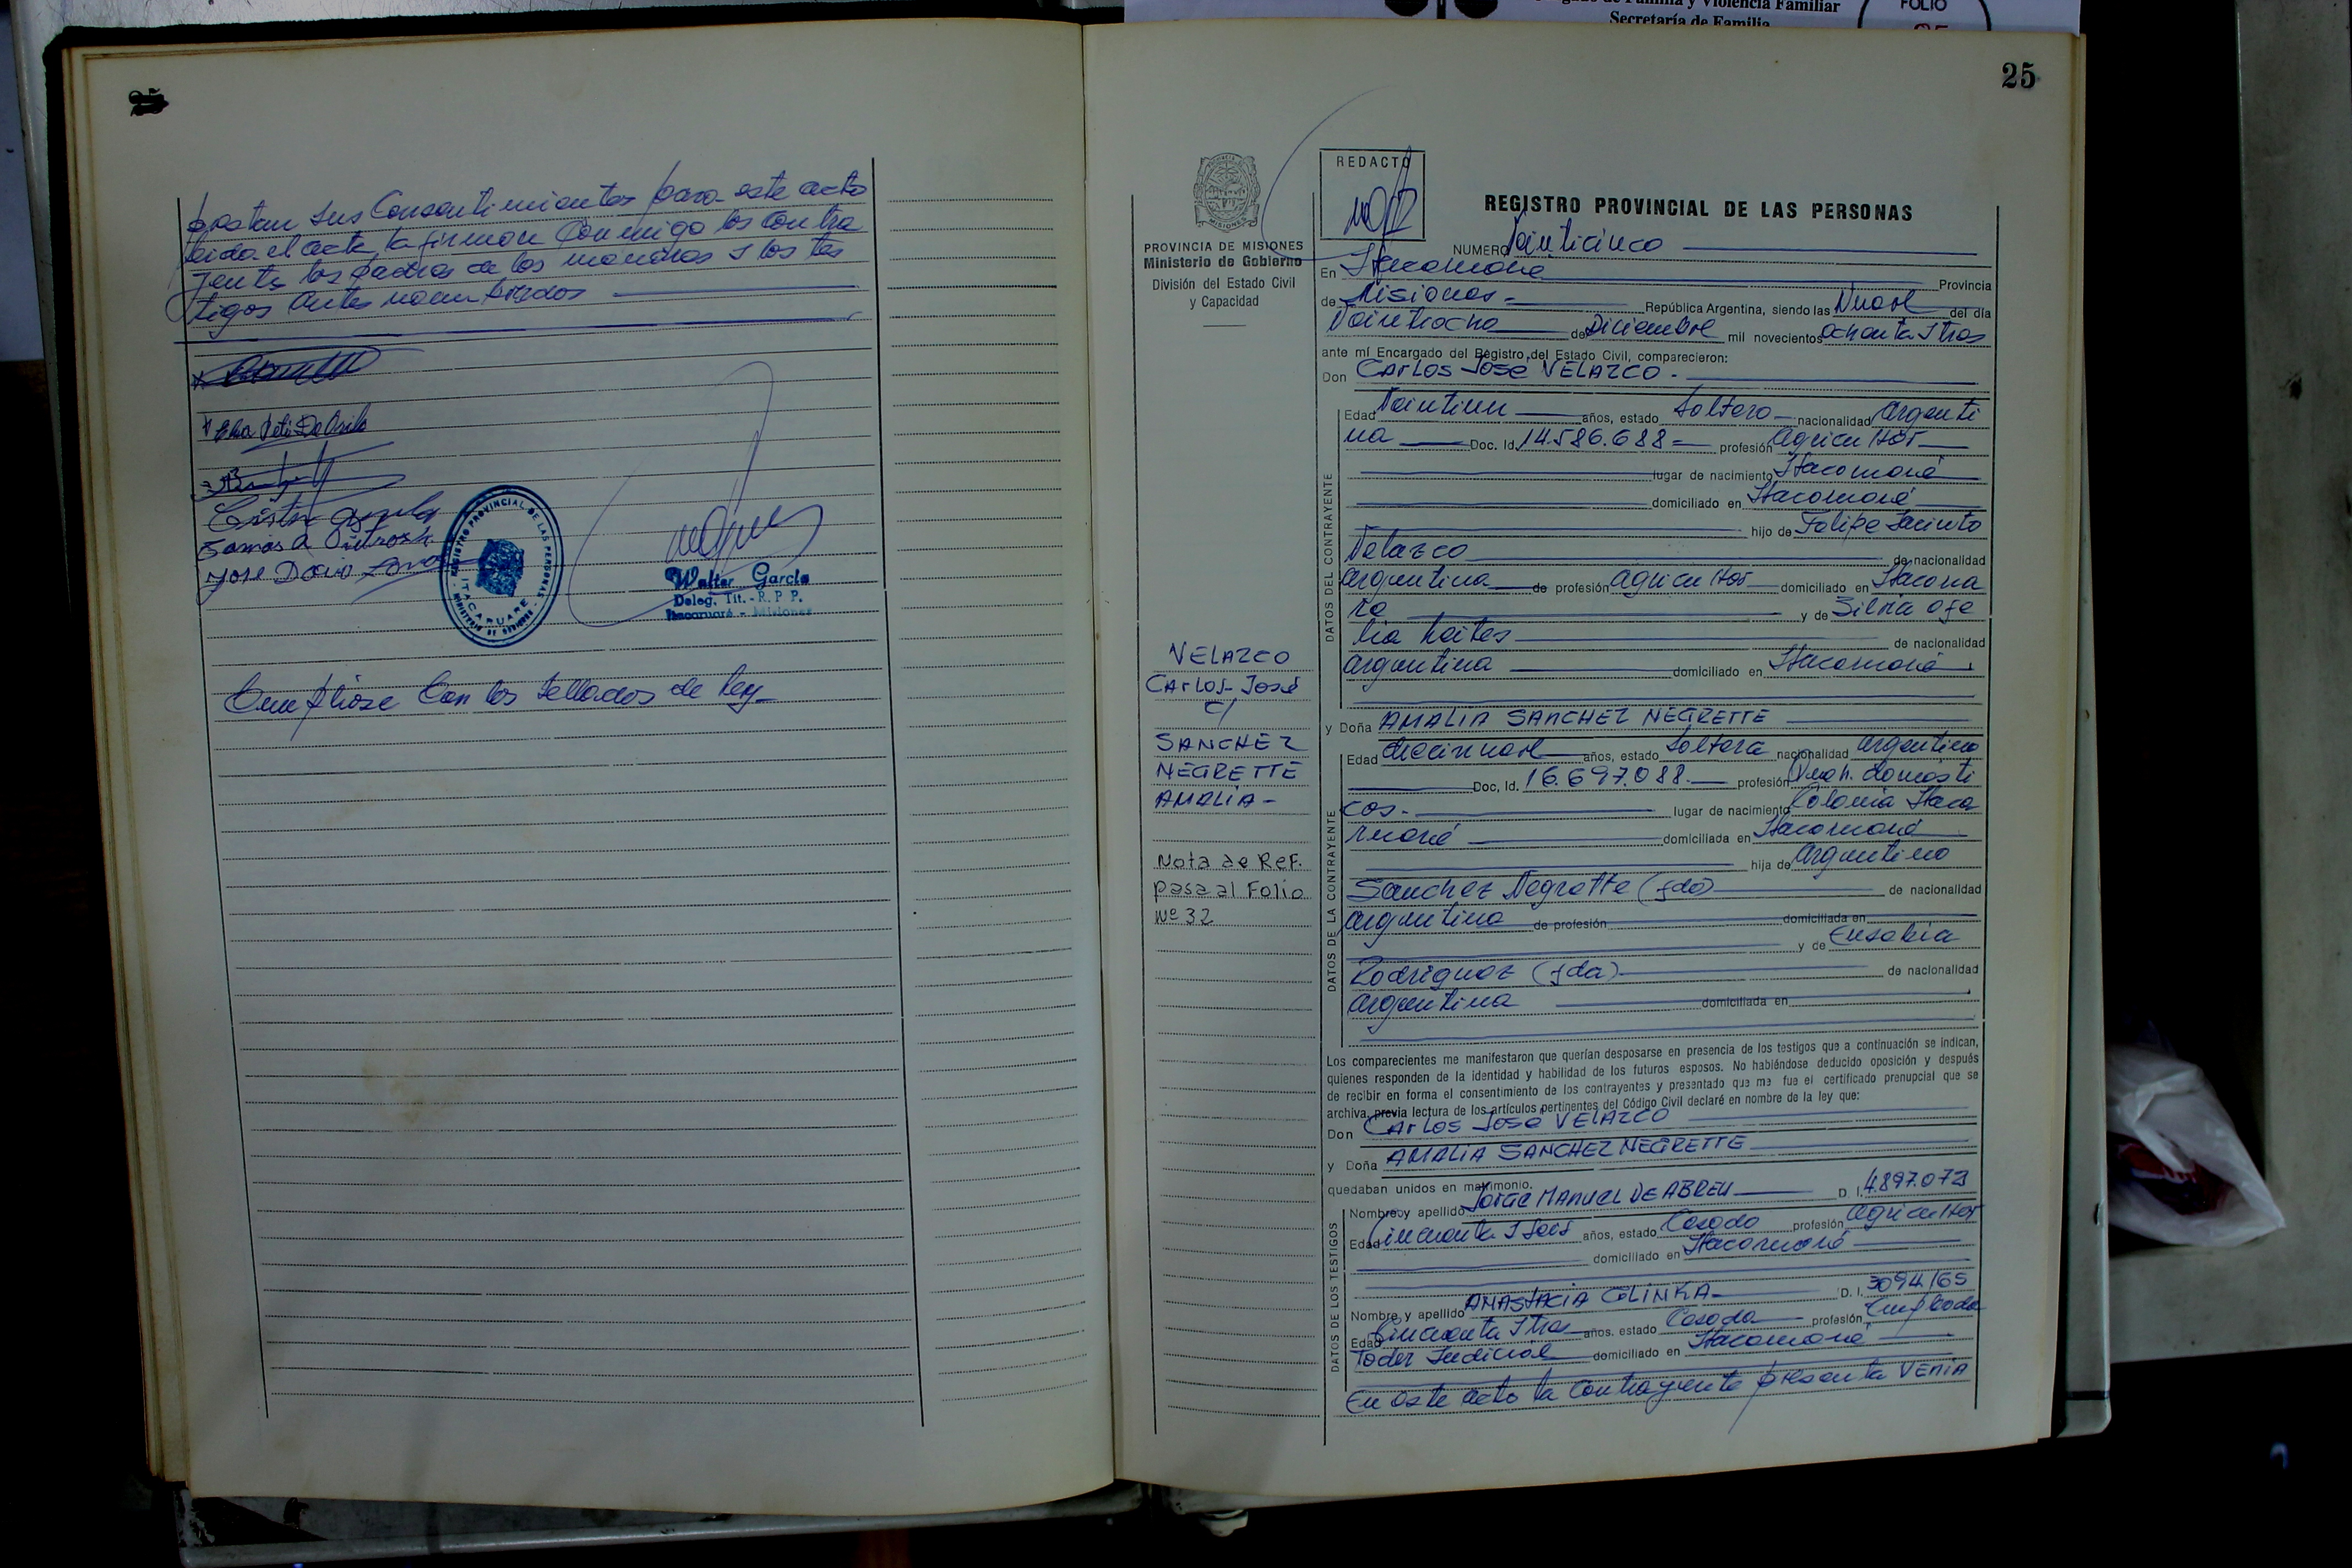 Familia y Violencia Familiar
Secretaría de Familia
FOLIO
25
prestan sus Consentimientos para este acto
leida el acta la firman Conmigo los Contra
yente los padres de los menores y los tes
tigos Antes nombrados
Walter García
Deleg. Tit. - R. P. P.
Itacaruaré - Misiones
REGISTRO PROVINCIAL DE LAS PERSONAS
ITACARUARE
Cumpliose Con los sellados de ley
25
REDACTO
REGISTRO PROVINCIAL DE LAS PERSONAS
PROVINCIA DE MISIONES
Ministerio de Gobierno
División del Estado Civil
y Capacidad
VELAZCO
CARLOS José
c/
SANCHEZ
NEGRETTE
AMALIA -
Nota de REF.
pasa al Folio
Nº 32
NUMERO Veinticinco
En Itacaruaré Provincia
de Misiones - República Argentina, siendo las Nueve del día
Veintiocho de Diciembre mil novecientos ochenta y tres
ante mí Encargado del Registro del Estado Civil, comparecieron:
Don CARLOS José VELAZCO -
DATOS DEL CONTRAYENTE
Edad Veintiun años, estado Soltero nacionalidad Argenti
na Doc. Id. 14.586.688 - profesión Agricultor
lugar de nacimiento Itacaruaré
domiciliado en Itacaruaré
hijo de Felipe Jacinto
Velazco de nacionalidad
argentina de profesión agricultor domiciliado en Itacarua
ré y de Silvia Ofe
lia de nacionalidad
argentina domiciliado en Itacaruaré
y Doña AMALIA SANCHEZ NEGRETTE
DATOS DE LA CONTRAYENTE
Edad diecinueve años, estado Soltera nacionalidad argentina
Doc. Id. 16.697.088. profesión Queh. domésti
cos - lugar de nacimiento Colonia Itaca
ruaré domiciliada en Itacaruaré
hija de Argentino
Sanchez Negrette (fdo) de nacionalidad
argentina de profesión domiciliada en
y de Eusebia
Rodriguez (fda) de nacionalidad
argentina domiciliada en
Los comparecientes me manifestaron que querían desposarse en presencia de los testigos que a continuación se indican,
quienes responden de la identidad y habilidad de los futuros esposos. No habiéndose deducido oposición y después
de recibir en forma el consentimiento de los contrayentes y presentado que me fue el certificado prenupcial que se
archiva, previa lectura de los artículos pertinentes del Código Civil declaré en nombre de la ley que:
Don CARLOS José VELAZCO
y Doña AMALIA SANCHEZ NEGRETTE
quedaban unidos en matrimonio.
DATOS DE LOS TESTIGOS
Nombre y apellido JORGE MANUEL DE ABREU D. I. 4.897.073
Edad Cincuenta y Seis años, estado Casado profesión Agricultor
domiciliado en Itacaruaré
Nombre y apellido ANASTACIA GLINKA - D. I. 3094165
Edad Cincuenta y tres años, estado Casada profesión Empleada
Poder Judicial domiciliado en Itacaruaré
En este acto la Contrayente presenta VENIA